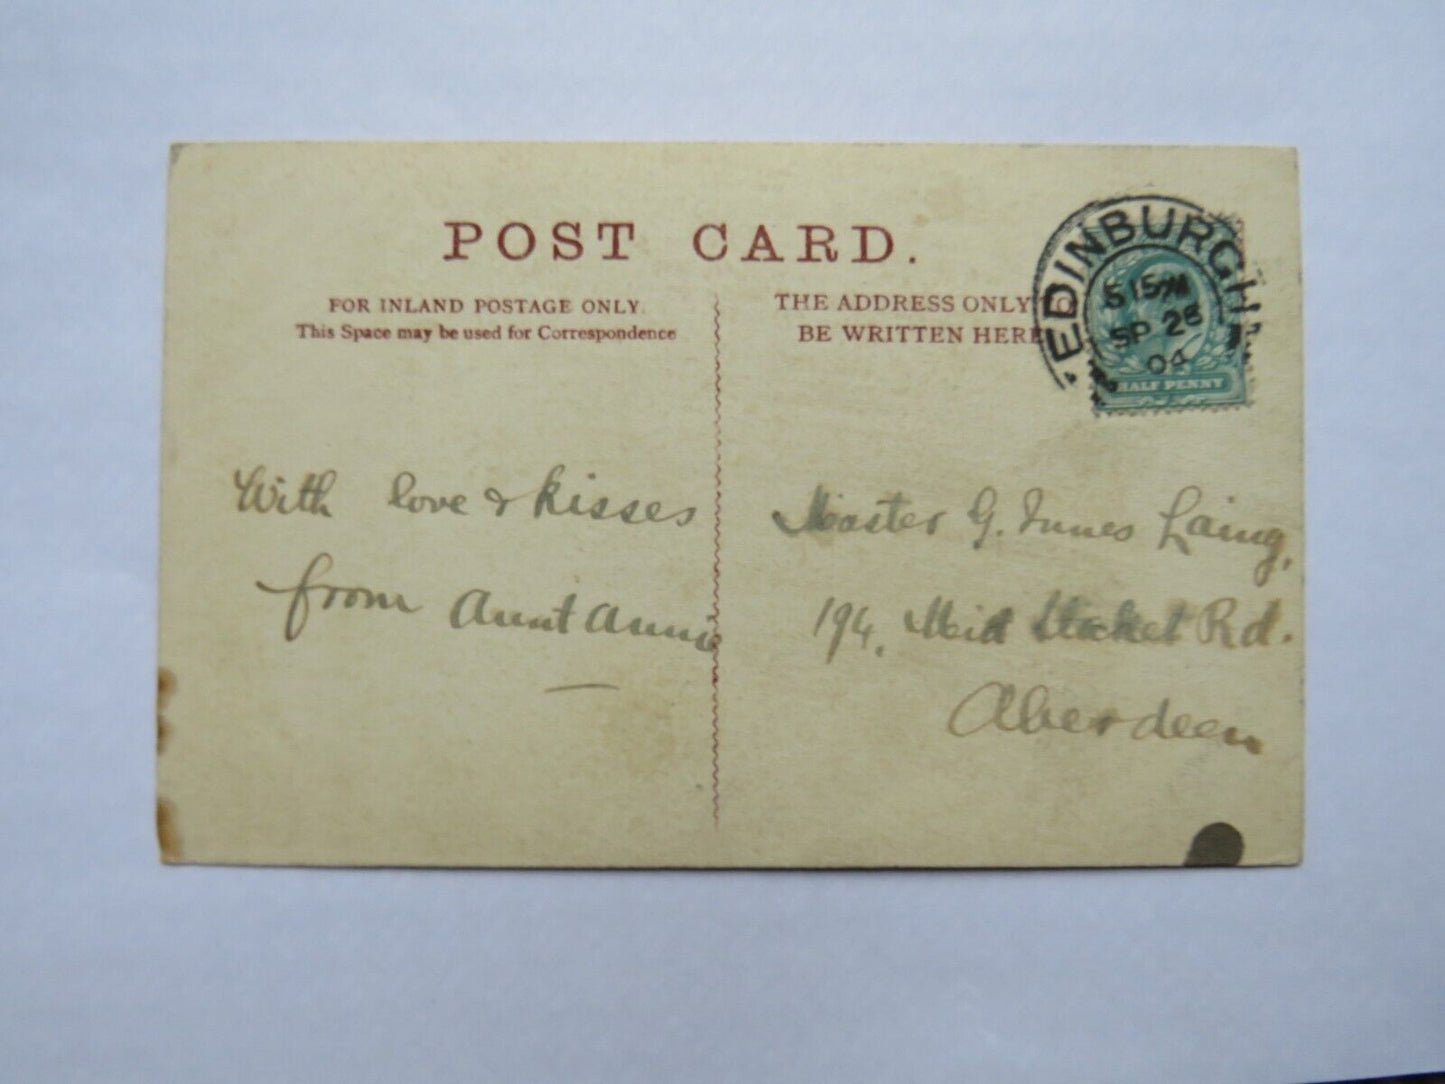 POST CARD.
FOR INLAND POSTAGE ONLY.
This Space may be used for Correspondence
THE ADDRESS ONLY TO
BE WRITTEN HERE
EDINBURGH
5 15 PM
SP 26
04
HALF PENNY
With love & kisses
from Aunt Annie
Master G. Innes Laing,
194, Mid Stocket Rd.
Aberdeen